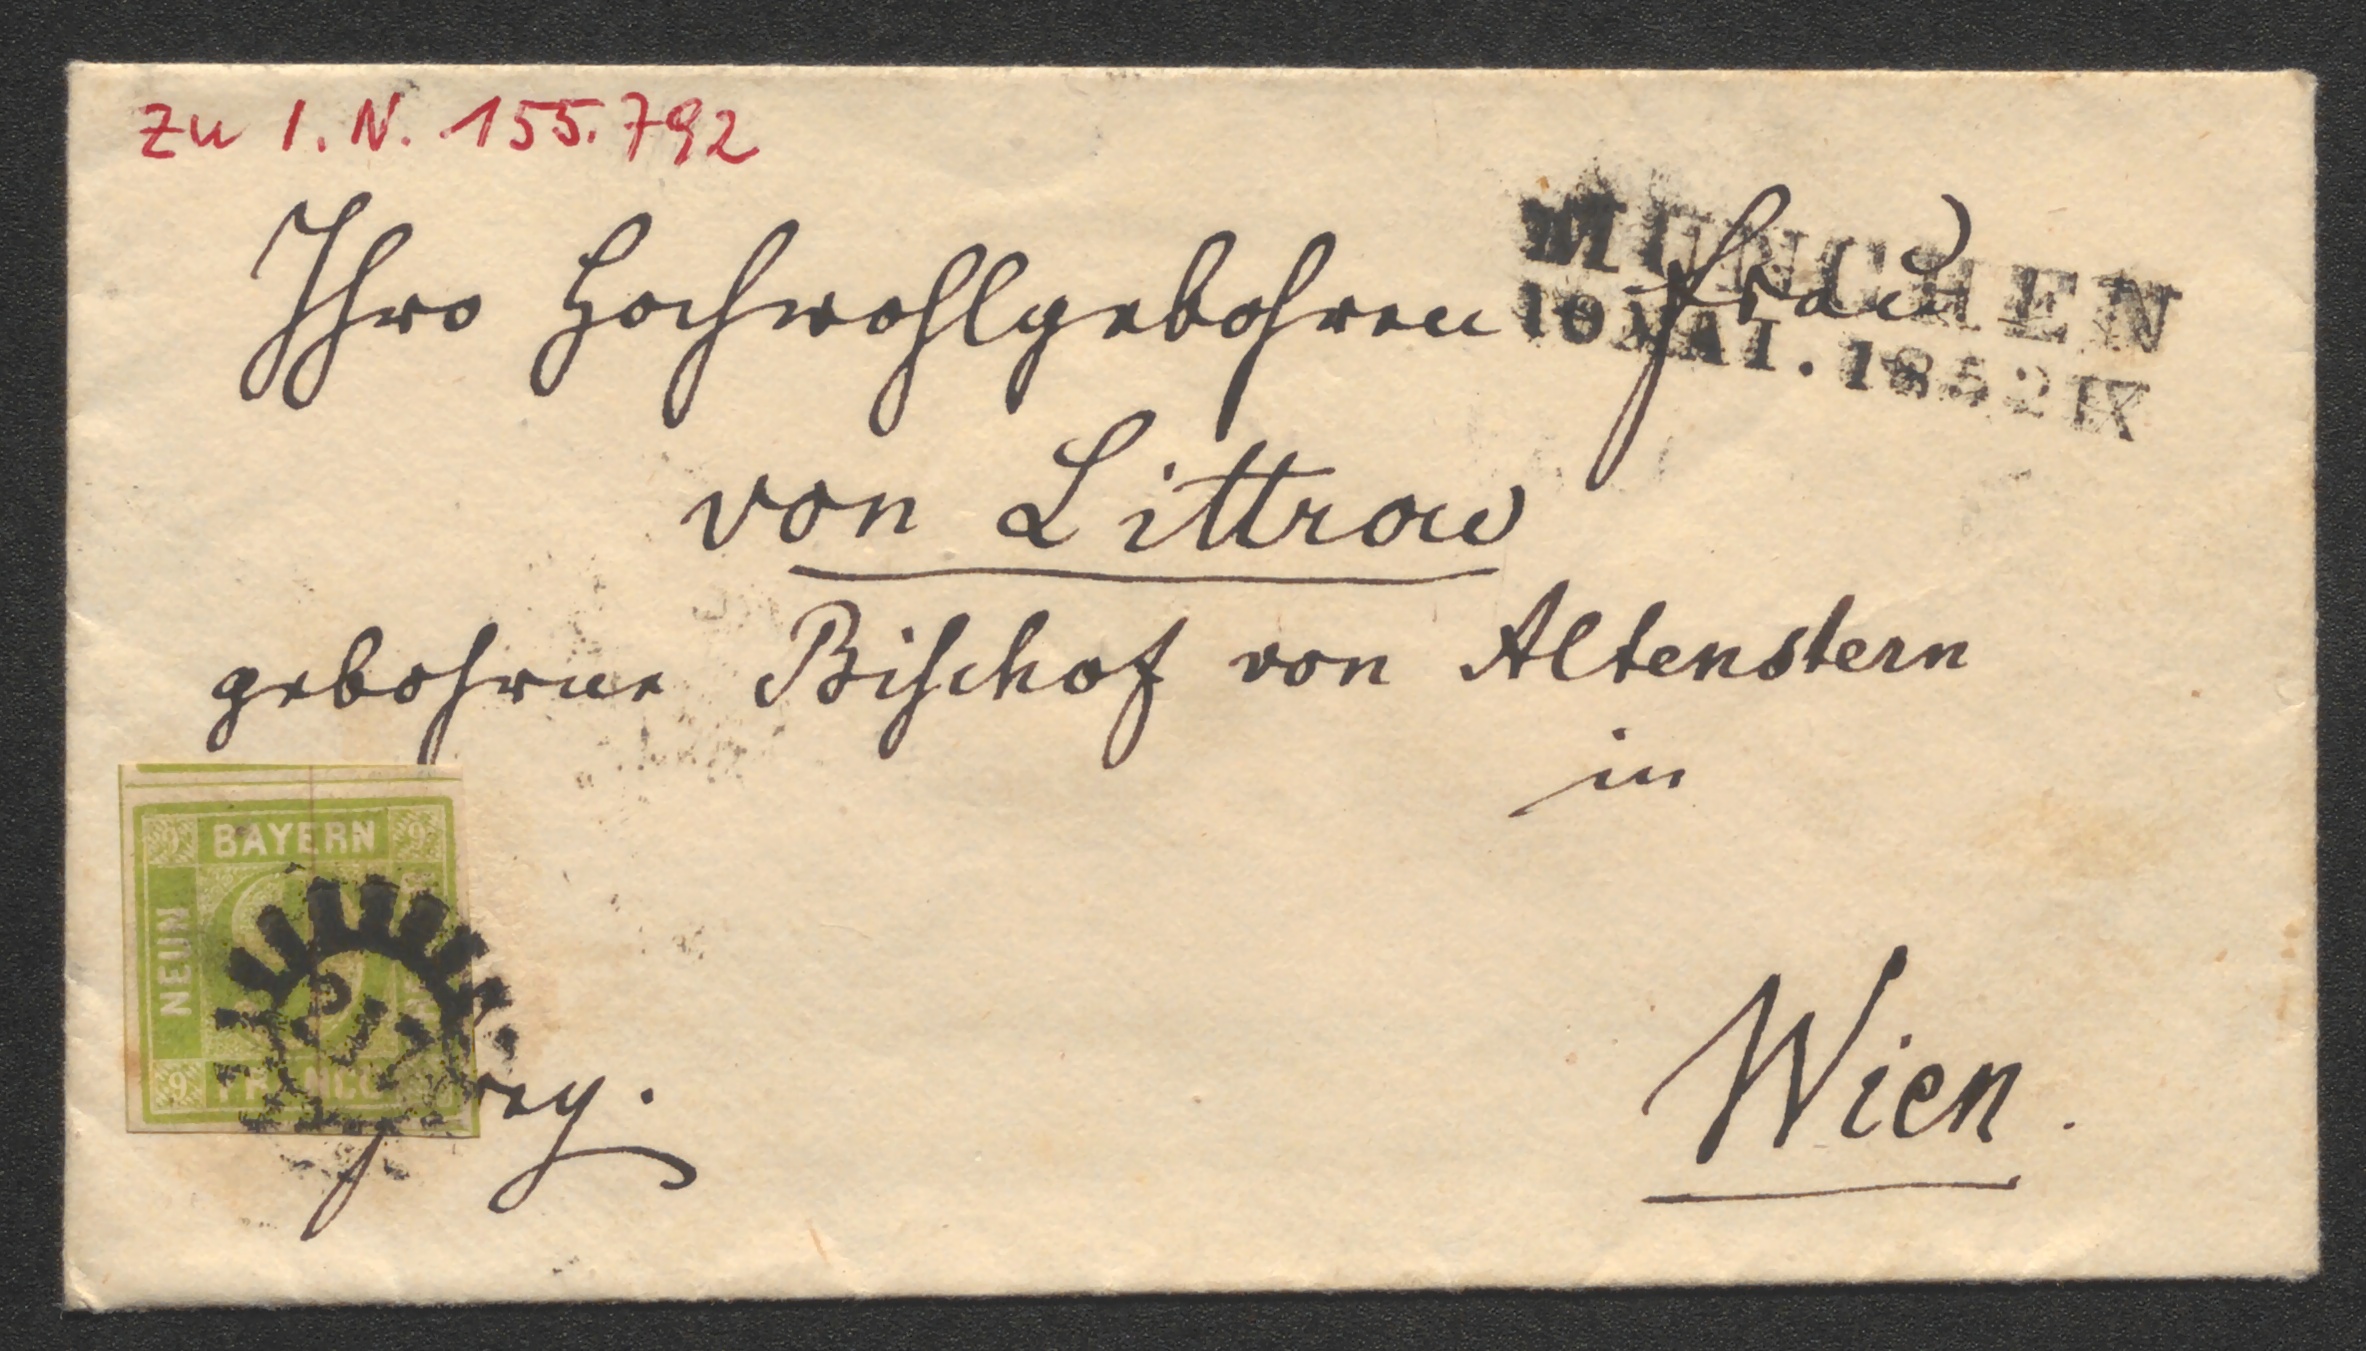 zu I. N. 155.792
Ihro Hochwohlgebohren Frau
MÜNCHEN
10 MAI. 1852 IX
von Littrow
gebohrne Bischof von Altenstern
in
Wien.
9 BAYERN 9
NEUN
9 FRANCO
frey.